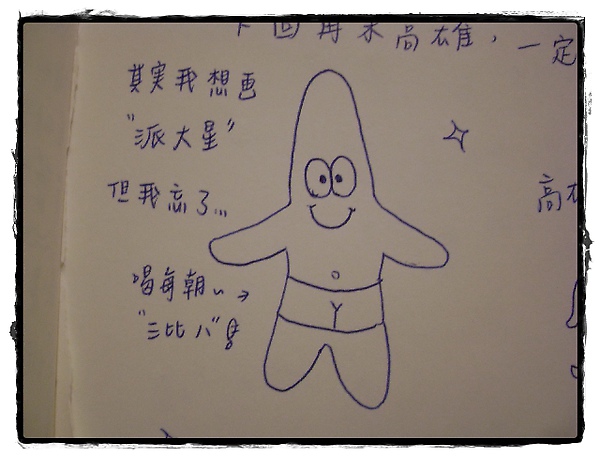 下回再来高雄，一定
其実我想画
"派大星"
但我忘了...
高
喝每朝~→
"三比八"!